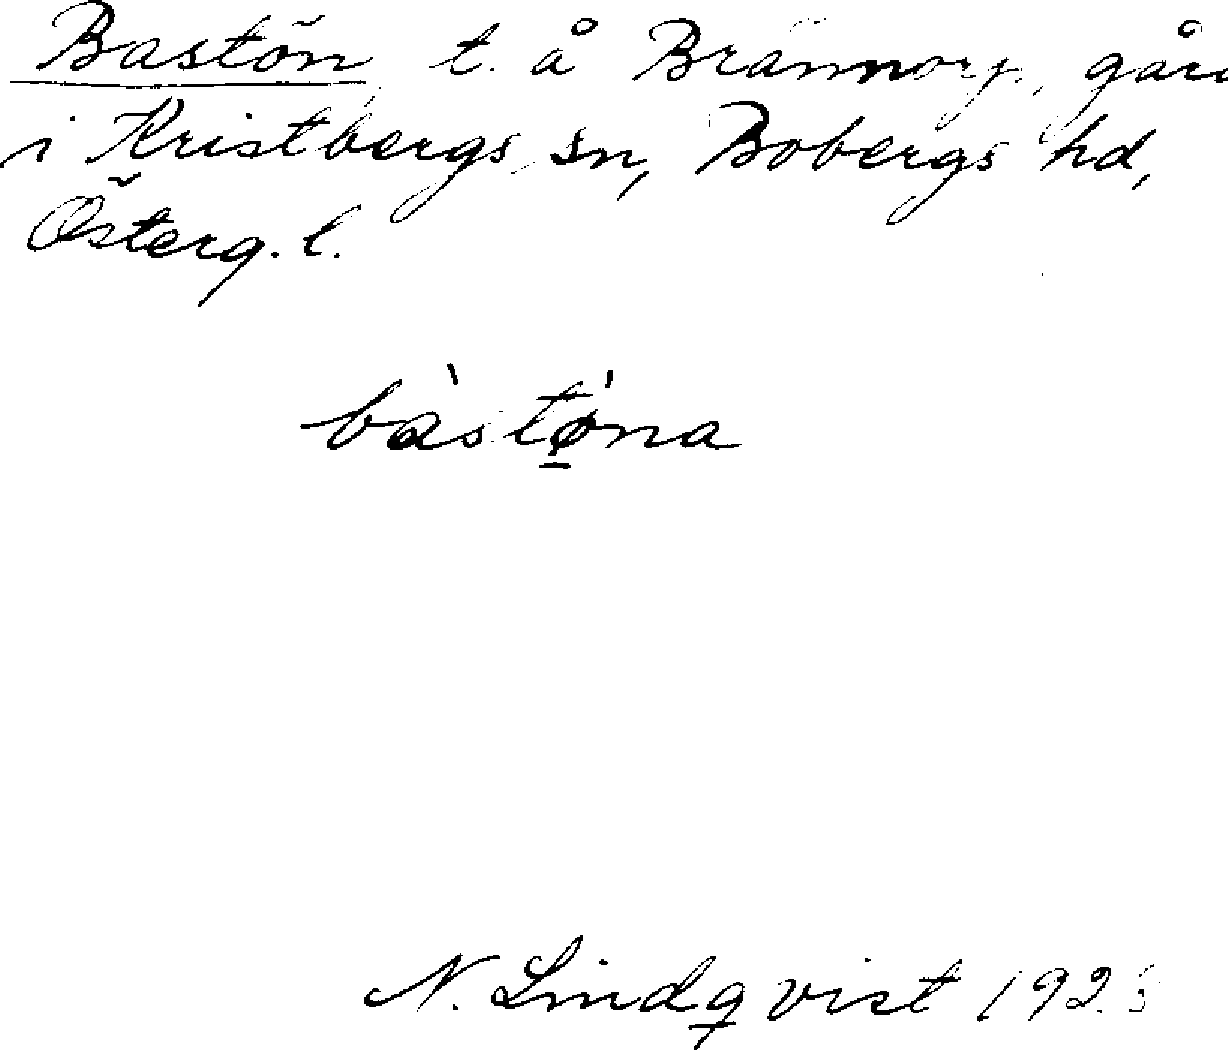 Bastön t. å Brännorp, går
i Kristbergs sn, Bobergs hd,
Österg. l.
bàstǿ̱na
N. Lindqvist